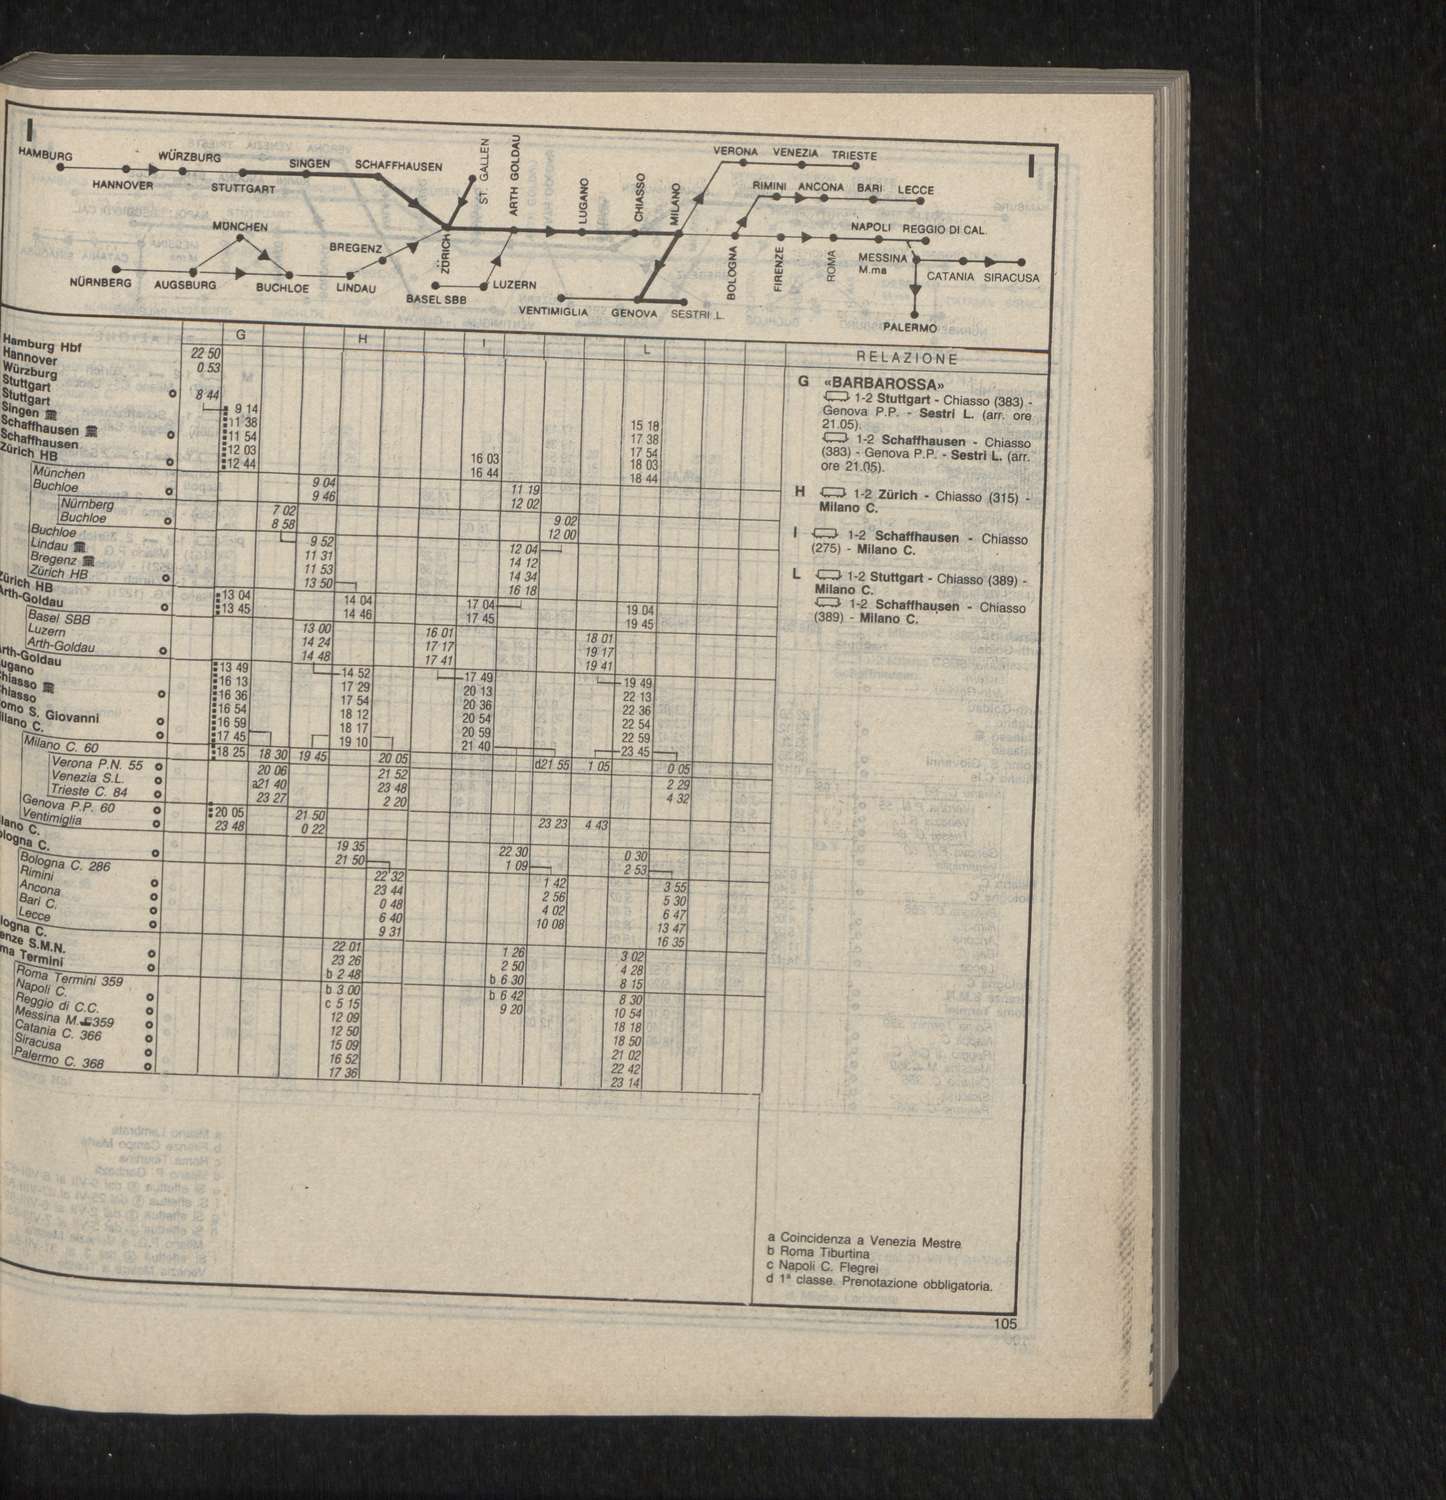 I
I
HAMBURG
HANNOVER
WÜRZBURG
STUTTGART
SINGEN
SCHAFFHAUSEN
ST. GALLEN
ARTH GOLDAU
LUGANO
CHIASSO
MILANO
VERONA VENEZIA TRIESTE
RIMINI ANCONA BARI LECCE
NAPOLI REGGIO DI CAL.
MÜNCHEN
BREGENZ
ZÜRICH
NÜRNBERG
AUGSBURG
BUCHLOE
LINDAU
BASEL SBB
LUZERN
VENTIMIGLIA
GENOVA
SESTRI L.
BOLOGNA
FIRENZE
ROMA
MESSINA
M.ma
CATANIA SIRACUSA
PALERMO
G H I L
RELAZIONE
Hamburg Hbf 22 50
Hannover 0 53
Würzburg
Stuttgart 8 44
Stuttgart 9 14 15 18
Singen 11 38 17 38
Schaffhausen 11 54 17 54
Schaffhausen 12 03 16 03 18 03
Zürich HB 12 44 16 44 18 44
München 9 04 11 19
Buchloe 9 46 12 02
Nürnberg 7 02 9 02
Buchloe 8 58 12 00
Buchloe 9 52 12 04
Lindau 11 31 14 12
Bregenz 11 53 14 34
Zürich HB 13 50 16 18
Zürich HB 13 04 14 04 17 04 19 04
Arth-Goldau 13 45 14 46 17 45 19 45
Basel SBB 13 00 16 01 18 01
Luzern 14 24 17 17 19 17
Arth-Goldau 14 48 17 41 19 41
Arth-Goldau 13 49 14 52 17 49 19 49
ugano 16 13 17 29 20 13 22 13
hiasso 16 36 17 54 20 36 22 36
hiasso 16 54 18 12 20 54 22 54
omo S. Giovanni 16 59 18 17 20 59 22 59
ilano C. 17 45 19 10 21 40 23 45
Milano C. 60 18 25 18 30 19 45 20 05 d21 55 1 05 0 05
Verona P.N. 55 20 06 21 52 2 29
Venezia S.L. a21 40 23 48 4 32
Trieste C. 84 23 27 2 20
Genova P.P. 60 20 05 21 50 23 23 4 43
Ventimiglia 23 48 0 22
lano C. 19 35 22 30 0 30
ologna C. 21 50 1 09 2 53
Bologna C. 286 22 32 1 42 3 55
Rimini 23 44 2 56 5 30
Ancona 0 48 4 02 6 47
Bari C. 6 40 10 08 13 47
Lecce 9 31 16 35
logna C. 22 01 1 26 3 02
enze S.M.N. 23 26 2 50 4 28
ma Termini b 2 48 b 6 30 8 15
Roma Termini 359 b 3 00 b 6 42 8 30
Napoli C. c 5 15 9 20 10 54
Reggio di C.C. 12 09 18 18
Messina M. 359 12 50 18 50
Catania C. 366 15 09 21 02
Siracusa 16 52 22 42
Palermo C. 368 17 36 23 14
G «BARBAROSSA»
1-2 Stuttgart - Chiasso (383) -
Genova P.P. - Sestri L. (arr. ore
21.05).
1-2 Schaffhausen - Chiasso
(383) - Genova P.P. - Sestri L. (arr.
ore 21.05).
H 1-2 Zürich - Chiasso (315) -
Milano C.
I 1-2 Schaffhausen - Chiasso
(275) - Milano C.
L 1-2 Stuttgart - Chiasso (389) -
Milano C.
1-2 Schaffhausen - Chiasso
(389) - Milano C.
a Coincidenza a Venezia Mestre
b Roma Tiburtina
c Napoli C. Flegrei
d 1ª classe. Prenotazione obbligatoria.
105